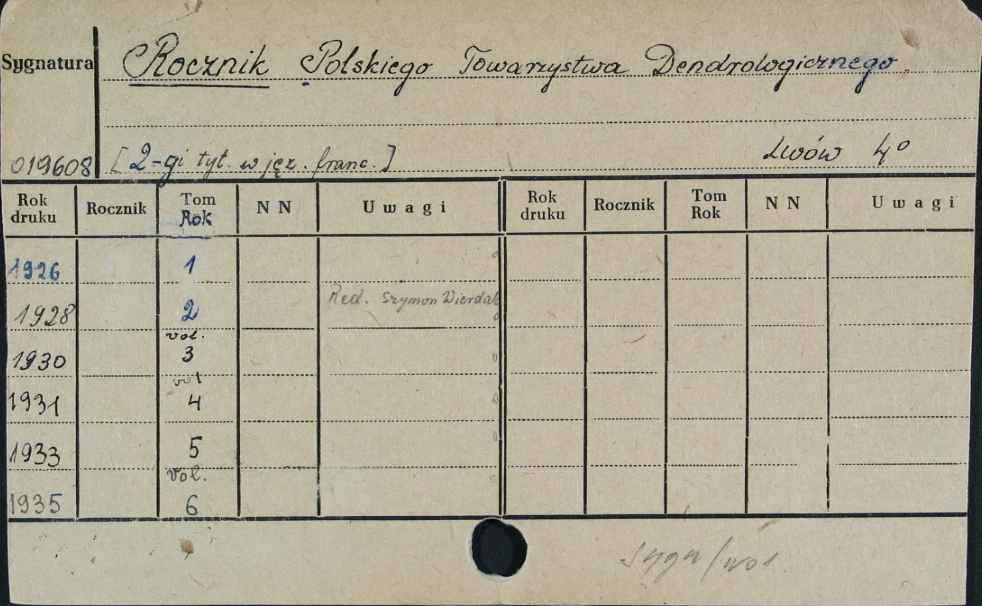 Sygnatura Rocznik Polskiego Towarzystwa Dendrologicznego
019608 [2-gi tyt. w jęz. franc.] Lwów 4°
Rok druku Rocznik Tom Rok N N Uwagi Rok druku Rocznik Tom Rok N N Uwagi
1926 1
1928 2 Red. Szymon Wierdak
vol.
1930 3
vol
1931 4
1933 5
vol.
1935 6
sygn/vol.